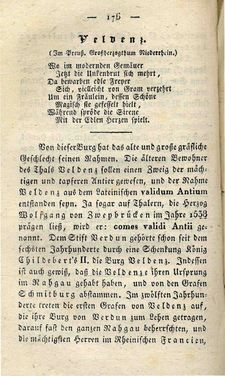 — 176 —
Veldenz.
(Im Preuß. Großherzogthum Niederrhein.)
Wo im modernden Gemäuer
Jetzt die Unkenbrut sich mehrt,
Da bewarben edle Freyer
Sich, vielleicht von Gram verzehrt
Um ein Fräulein, dessen Schöne
Magisch sie gefesselt hielt,
Während spröde die Sirene
Mit der Edlen Herzen spielt.
Von dieser Burg hat das alte und große gräfliche
Geschlecht seinen Nahmen. Die älteren Bewohner
des Thals Veldenz sollen einen Zweig der mächti-
gen und tapferen Antier gewesen, und der Nahme
Veldenz aus dem Lateinischen validum Antium
entstanden seyn. Ja sogar auf Thalern, die Herzog
Wolfgang von Zweybrücken im Jahre 1538
prägen ließ, wird er: comes validi Antii ge-
nannt. Dem Stift Verdun gehörte schon seit dem
sechsten Jahrhundert durch eine Schenkung König
Childebert's II. die Burg Veldenz. Indessen ist
es auch gewiß, daß die Veldenze ihren Ursprung
im Nahgau gehabt haben, und von den Grafen
Schmitburg abstammen. Im zwölften Jahrhun-
derte treten die ersten Grafen von Veldenz auf,
welche die Burg von Verdun zum Lehen getragen,
darauf fast den ganzen Nahgau beherrschten, und die
mächtigsten Herren im Rheinischen Francien,